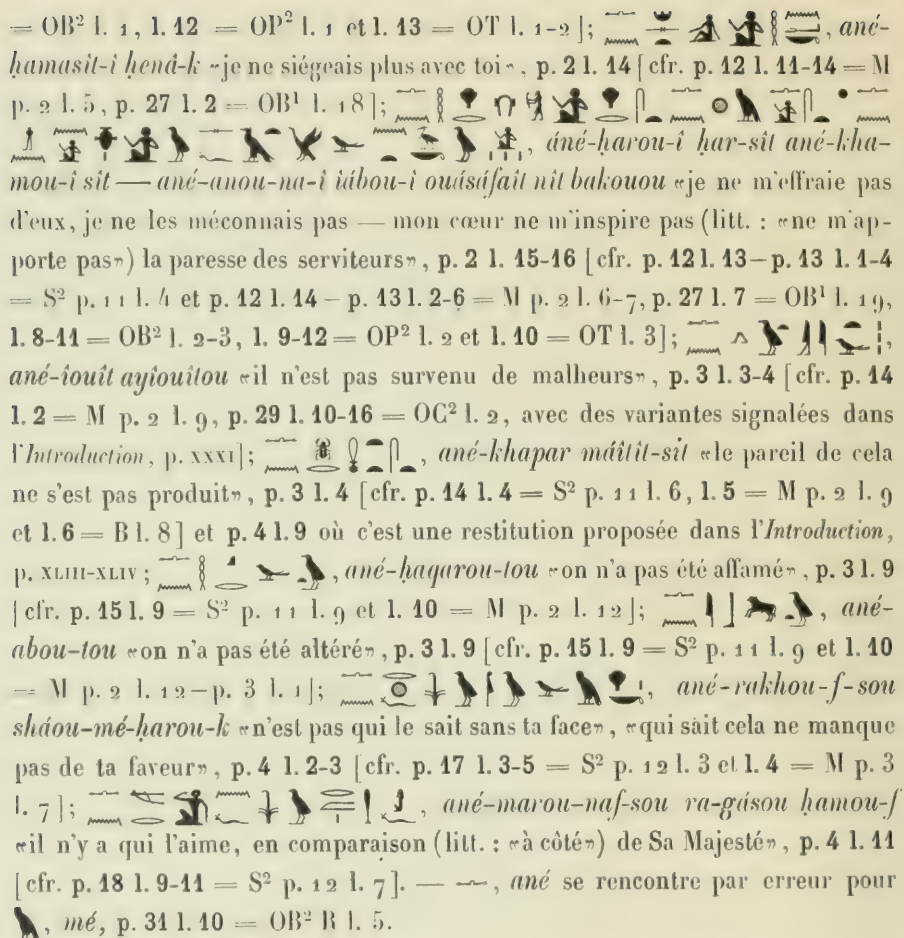 = OB² l. 1, l. 12 = OP² l. 1 et l. 13 = OT l. 1-2]; , ané-
ḥamasît-î ḥenâ-k «je ne siégeais plus avec toi», p. 2 l. 14 [cfr. p. 12 l. 11-14 = M
p. 2 l. 5, p. 27 l. 2 = OB¹ l. 18];
, áné-ḥarou-î ḥar-sît ané-kha-
mou-î sît — ané-anou-na-î iábou-î ouásáfaît nît bakouou «je ne m'effraie pas
d'eux, je ne les méconnais pas — mon cœur ne m'inspire pas (litt. : «ne m'ap-
porte pas») la paresse des serviteurs», p. 2 l. 15-16 [cfr. p. 12 l. 13 – p. 13 l. 1-4
= S² p. 11 l. 4 et p. 12 l. 14 – p. 13 l. 2-6 = M p. 2 l. 6-7, p. 27 l. 7 = OB¹ l. 19,
l. 8-11 = OB² l. 2-3, l. 9-12 = OP² l. 2 et l. 10 = OT l. 3]; ,
ané-îouît ayîouîtou «il n'est pas survenu de malheurs», p. 3 l. 3-4 [cfr. p. 14
l. 2 = M p. 2 l. 9, p. 29 l. 10-16 = OC² l. 2, avec des variantes signalées dans
l'Introduction, p. XXXI]; , ané-khapar máîtît-sît «le pareil de cela
ne s'est pas produit», p. 3 l. 4 [cfr. p. 14 l. 4 = S² p. 11 l. 6, l. 5 = M p. 2 l. 9
et l. 6 = B l. 8] et p. 4 l. 9 où c'est une restitution proposée dans l'Introduction,
p. XLIII-XLIV; , ané-haqarou-tou «on n'a pas été affamé», p. 3 l. 9
[cfr. p. 15 l. 9 = S² p. 11 l. 9 et l. 10 = M p. 2 l. 12]; , ané-
abou-tou «on n'a pas été altéré», p. 3 l. 9 [cfr. p. 15 l. 9 = S² p. 11 l. 9 et l. 10
= M p. 2 l. 12 – p. 3 l. 1]; , ané-rakhou-f-sou
sháou-mé-ḥarou-k «n'est pas qui le sait sans ta face», «qui sait cela ne manque
pas de ta faveur», p. 4 l. 2-3 [cfr. p. 17 l. 3-5 = S² p. 12 l. 3 et l. 4 = M p. 3
l. 7]; , ané-marou-naf-sou ra-gásou ḥamou-f
«il n'y a qui l'aime, en comparaison (litt. : «à côté») de Sa Majesté», p. 4 l. 11
[cfr. p. 18 l. 9-11 = S² p. 12 l. 7]. — , ané se rencontre par erreur pour
, mé, p. 31 l. 10 = OB² B l. 5.